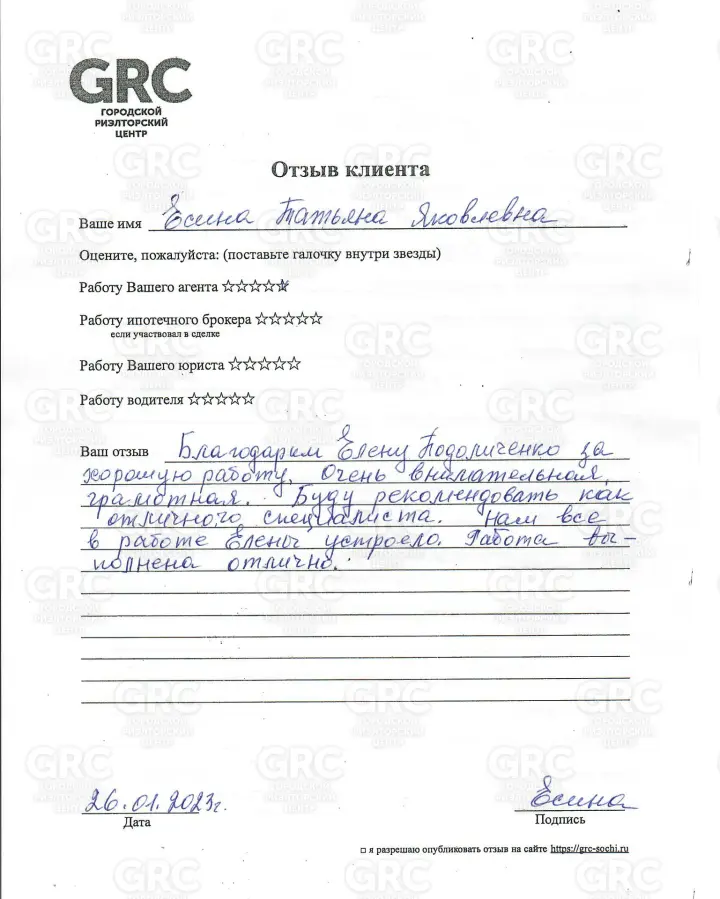 GRC
ГОРОДСКОЙ
РИЭЛТОРСКИЙ
ЦЕНТР
Отзыв клиента
Ваше имя Есина Татьяна Яковлевна
Оцените, пожалуйста: (поставьте галочку внутри звезды)
Работу Вашего агента ☆☆☆☆☆
Работу ипотечного брокера ☆☆☆☆☆
если участвовал в сделке
Работу Вашего юриста ☆☆☆☆☆
Работу водителя ☆☆☆☆☆
Ваш отзыв Благодарим Елену Подоличенко за
хорошую работу. Очень внимательная,
грамотная. Буду рекомендовать как
отличного специалиста. Нам все
в работе Елены устроело. Работа вы-
полнена отлично.
26.01.2023г.
Дата
Есина
Подпись
□ я разрешаю опубликовать отзыв на сайте https://grc-sochi.ru